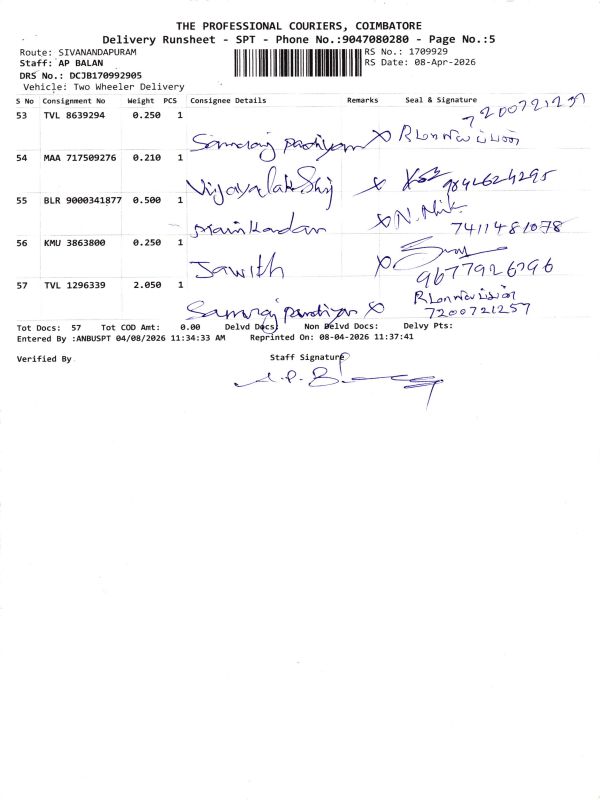 THE PROFESSIONAL COURIERS, COIMBATORE
Delivery Runsheet - SPT - Phone No.:9047080280 - Page No.:5
Route: SIVANANDAPURAM
RS No.: 1709929
Staff: AP BALAN
RS Date: 08-Apr-2026
DRS No.: DCJB170992905
Vehicle: Two Wheeler Delivery
S No Consignment No Weight PCS Consignee Details Remarks Seal & Signature
53 TVL 8639294 0.250 1
7200721257
Samaraj pandiyan x
54 MAA 717509276 0.210 1
Vijayalakshmi x 9842624295
55 BLR 9000341877 0.500 1
Manikandan x N.
7411481078
56 KMU 3863800 0.250 1
Jawith x
9677926796
57 TVL 1296339 2.050 1
Samaraj pandiyan x
7200721257
Tot Docs: 57 Tot COD Amt: 0.00 Delvd Docs: Non Delvd Docs: Delvy Pts:
Entered By :ANBUSPT 04/08/2026 11:34:33 AM Reprinted On: 08-04-2026 11:37:41
Verified By Staff Signature
A.P. B